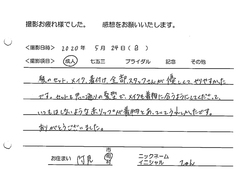 撮影お疲れ様でした。 感想をお願いいたします。
<撮影日時> 2020年 5月 29日(日)
<撮影項目> 成人 七五三 ブライダル 記念 その他
髪のセット、メイク、着付け、全部スタッフさんが優しくてやりやすかった
です。セットも思い通りの髪型で、メイクも着物に合うようにしてくださって、
いつもはしないような赤リップが着物とあっていてうれしかったです。
ありがとうございました。
お住まい 阿見 市 町 村 ニックネーム イニシャル